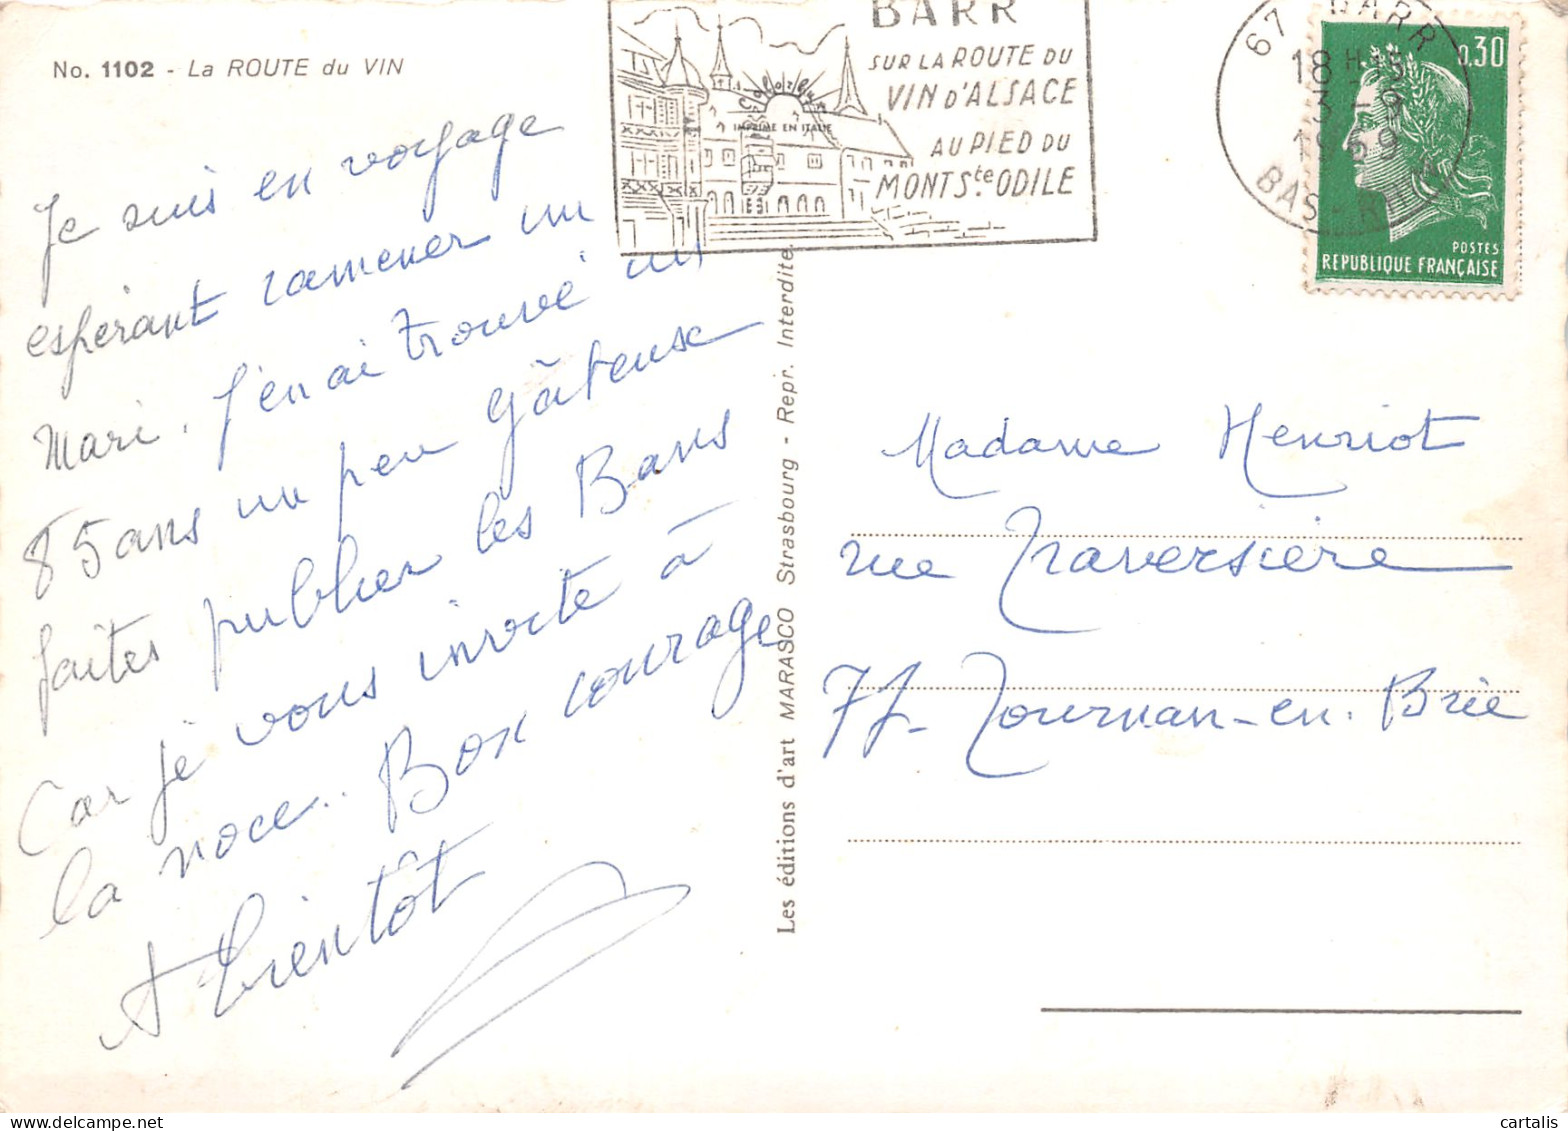 No. 1102 - La ROUTE du VIN
Je suis en voyage
espérant ramener un
Mari. J'en ai trouvé un
85 ans un peu gâteux
faites publier les Bans
Car je vous invite à
la noce.. Bon courage
A bientôt
BARR
SUR LA ROUTE DU
VIN D'ALSACE
AU PIED DU
MONT Ste ODILE
Colorlux
IMPRIME EN ITALIE
67 BARR
18 H 15
3 - 9
1969
BAS-RHIN
0,30
POSTES
REPUBLIQUE FRANÇAISE
Les éditions d'art MARASCO Strasbourg - Repr. Interdite
Madame Henriot
rue Traversière
77- Tournan-en-Brie
cartalis